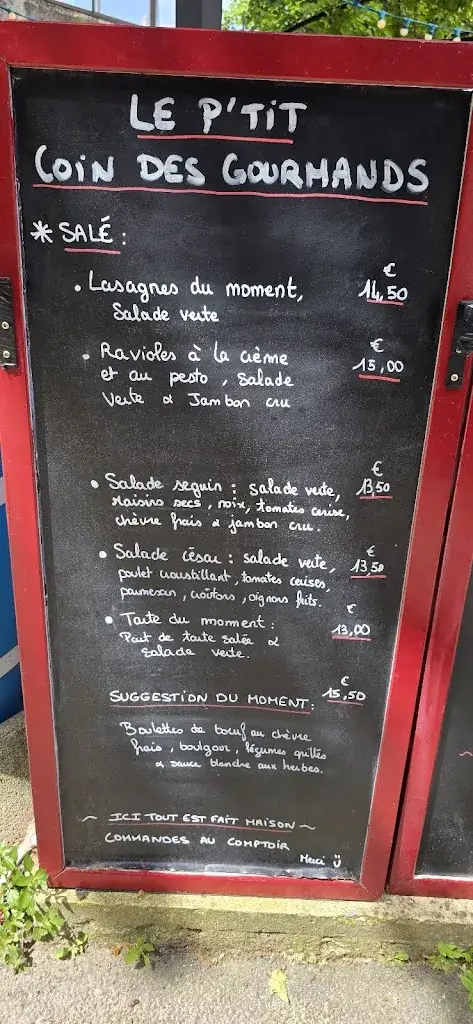 LE P'TIT
COIN DES GOURMANDS
* SALÉ :
• Lasagnes du moment, € 14,50
Salade verte
• Ravioles à la crème € 15,00
et au pesto, Salade
Verte & Jambon cru
• Salade seguin : salade verte, € 13,50
raisins secs, noix, tomates cerise,
chèvre frais & jambon cru.
• Salade césar : salade verte, € 13,50
poulet croustillant, tomates cerises,
parmesan, croûtons, oignons frits.
• Tarte du moment : € 13,00
Part de tarte salée &
Salade verte.
SUGGESTION DU MOMENT : € 15,50
Boulettes de boeuf au chèvre
frais, boulgour, légumes grillés
& sauce blanche aux herbes.
~ ICI TOUT EST FAIT MAISON ~
COMMANDES AU COMPTOIR
Merci